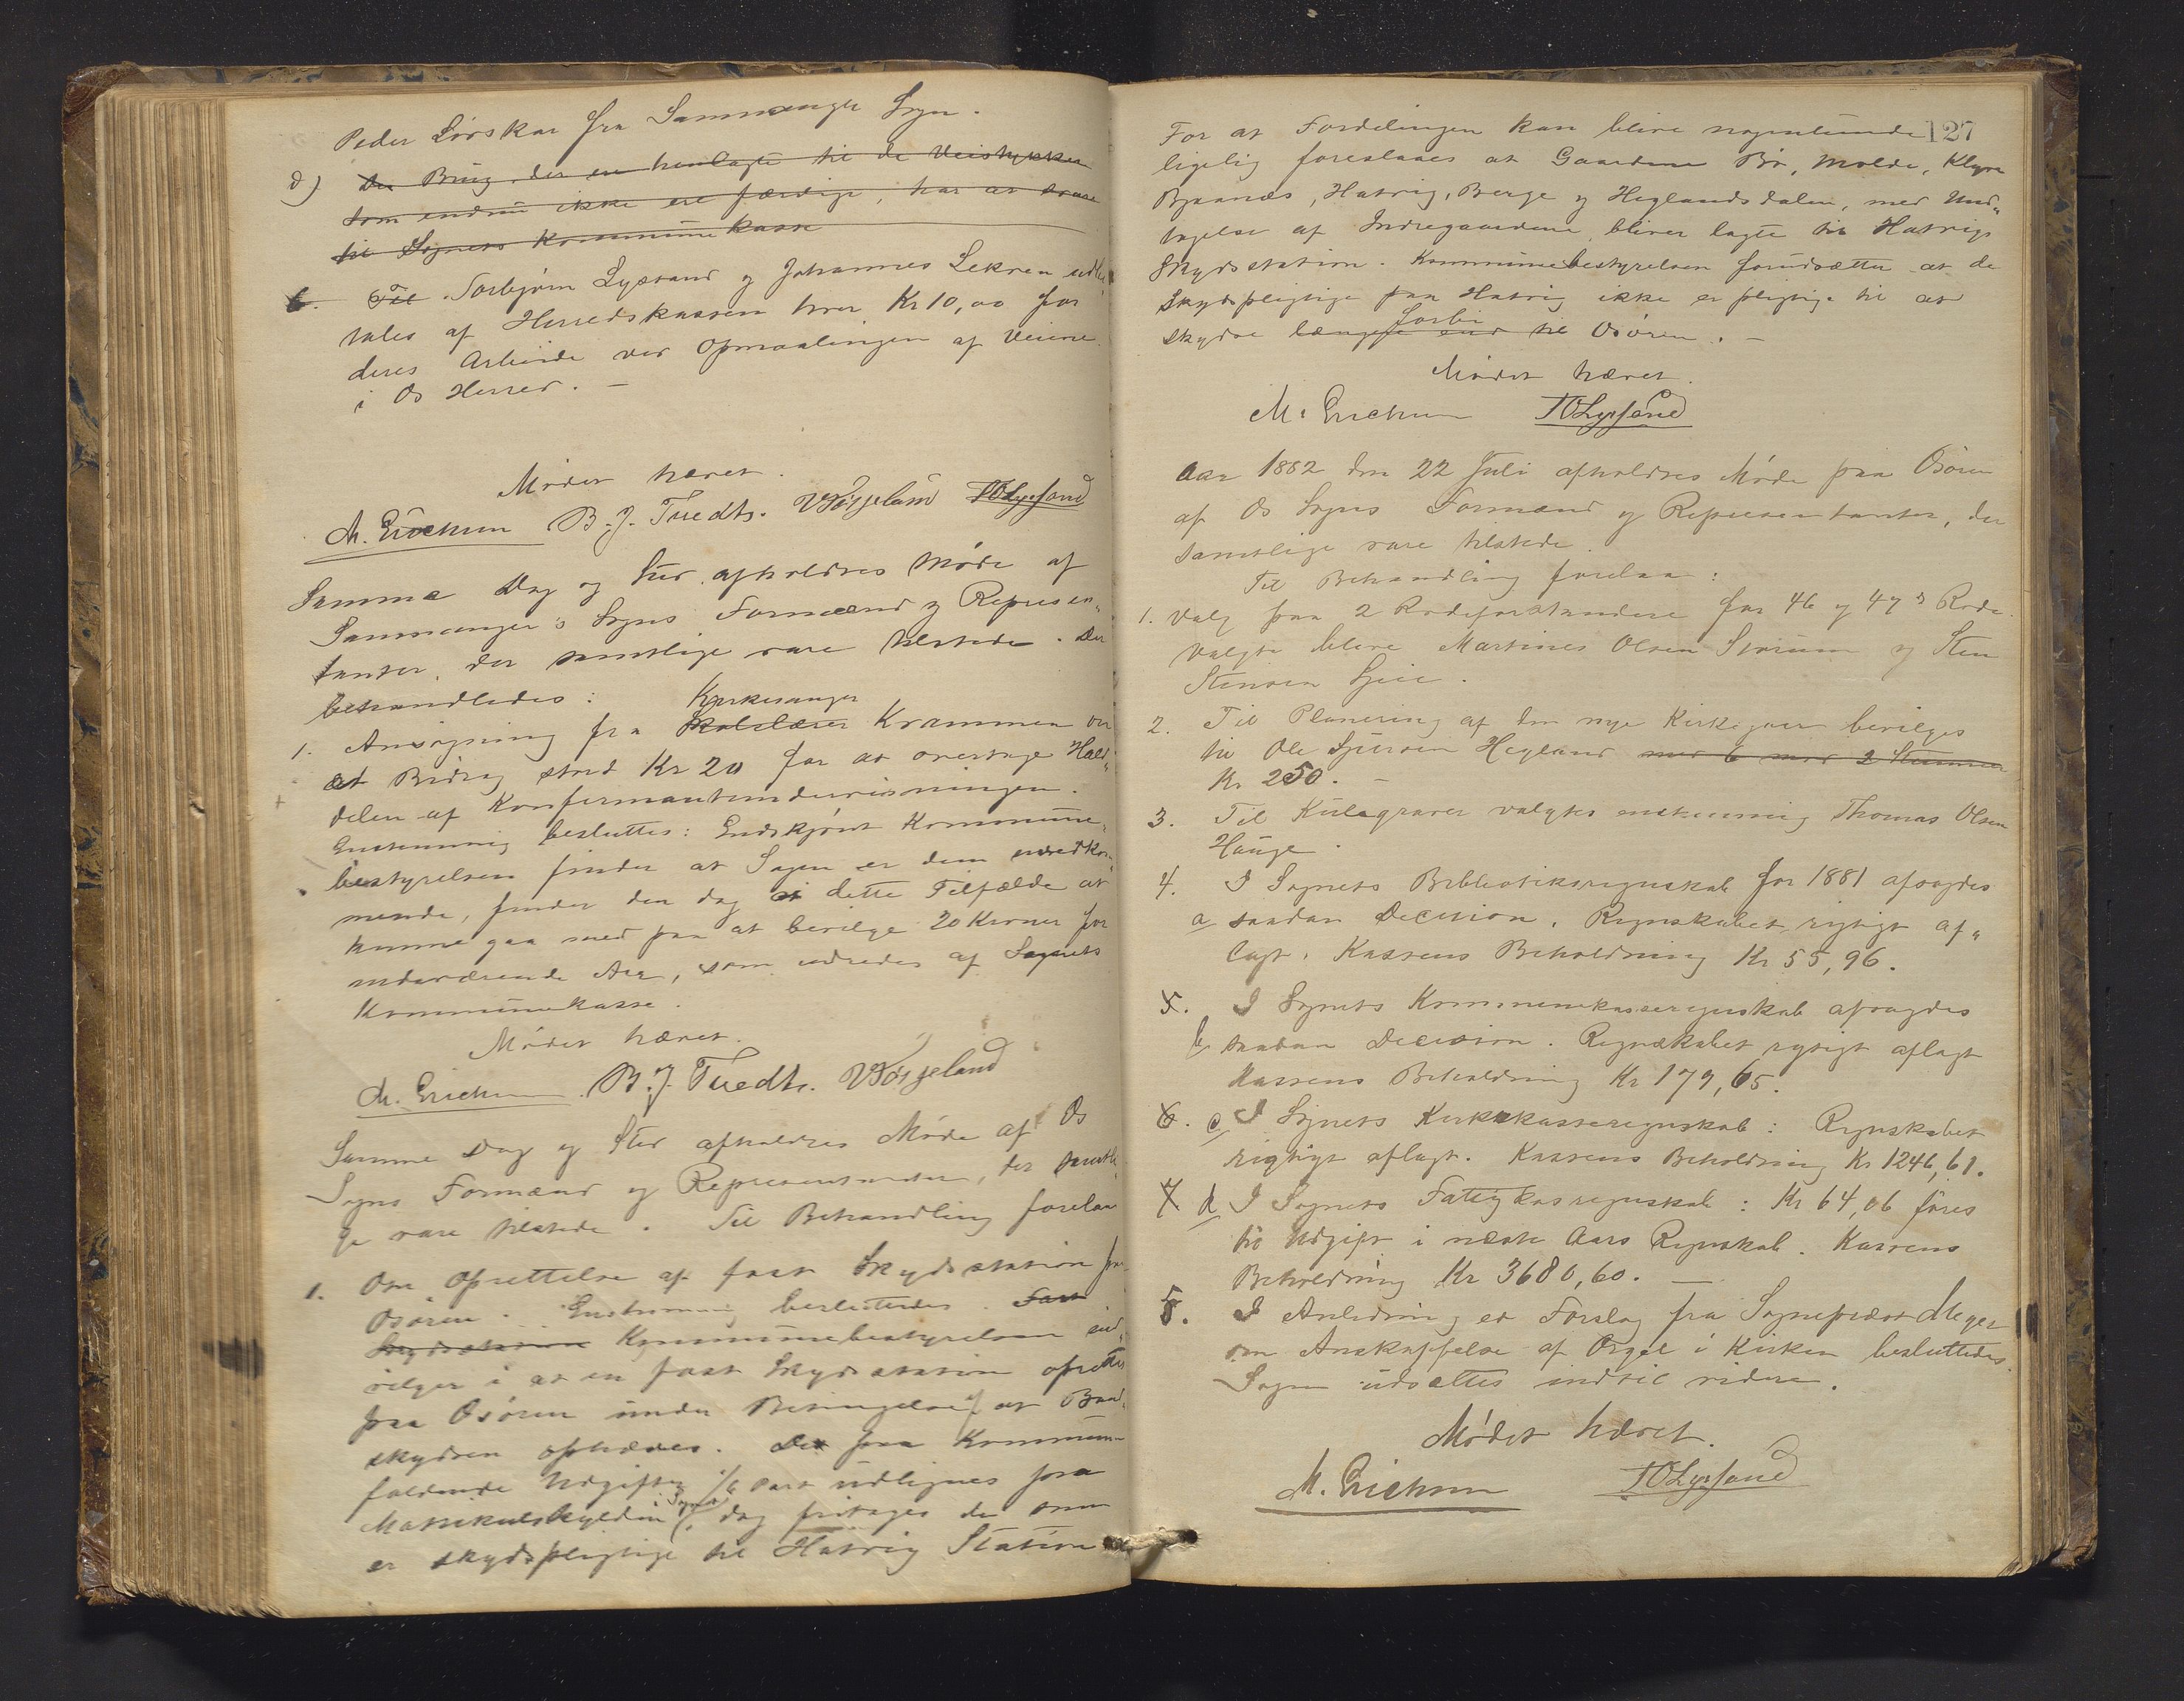 Peder Løvskar fra Sammanger Sogn.
d) De Brug, der ere henlagte til de Veistykker
som endnu ikke ere færdige, har at svare
til Sognets Kommunekasse
6. Til Torbjørn Lysand og Johannes Lekven udbe-
tales af Herredskassen hver Kr 10,00 for
deres Arbeide ved Opmaalingen af Veiene
i Os Herred. —
Mødet hævet.
M. Erichsen B. J. Tvedts. Vørgeland TOLysand
Samme Dag og Sted afholdtes Møde af
Sammanger's Sogns Formænd og Represen-
tanter, der samtlige vare tilstede. Der
behandledes:
Kirkesanger
1. Ansøgning fra Skolelærer Krammen om
et Bidrag stort Kr 20 for at overtage Hæld-
delen af Konfirmantundervisningen.
Enstemmig besluttes: Endskjønt Kommune-
bestyrelsen finder at Sagen er dem uvedkom-
mende, finder den dog i dette Tilfælde at
kunne gaa med paa at bevilge 20 Kroner for
indeværende Aar, som udredes af Sognets
Kommunekasse.
Mødet hævet.
M. Erichsen B. J. Tvedts. Vørgeland
Samme Dag og Sted afholdtes Møde af Os
Sogns Formænd og Representanter, der samtli-
ge vare tilstede. Til Behandling forelaa
1. Om Oprettelse af fast Skydsstation paa
Osøren. Enstemmig besluttedes. Fast
Skydsstation Kommunebestyrelsen ind-
vilger i at en fast Skydsstation oprettes
paa Osøren under Betingelse af at Baad-
skydsen ophæves. Det paa Kommunen
faldende Udgifter 1/4 Part udlignes paa
Matrikulskylden i Sognet, dog fritages de som
er skydspligtige til Hatvig Station
127
For at Fordelingen kan blive nogenlunde
ligelig foreslaaes at Gaardene Bø, Molde, Kleven
Bjaanes, Hatvig, Berge og Heglandsdalen, med Und-
tagelse af Indregaardene bliver lagte til Hatvigs
Skydsstation. Kommunebestyrelsen forudsætter at de
Skydspligtige paa Hatvig ikke er pligtige til at
forbi
skydse længere end til Osøren. —
Mødet hævet.
M. Erichsen TOLysand
Aar 1882 den 22 Juli afholdtes Møde paa Osøren
af Os Sogns Formænd og Representanter, der
samtlige vare tilstede.
Til Behandling forelaa:
1. Valg paa 2 Rodeforstandere for 46 og 47s Rode.
Valgte bleve Martines Olsen Sørum og Sten
Stensen Lyeie.
2. Til Planering af den nye Kirkegaard bevilges
til Ole Sjursen Hegland med 6 mod 2 Stemmer
Kr 250. —
3. Til Kulegraver valgtes enstemmig Thomas Olsen
Hauge.
4. I Sognets Bibliotheksregnskab for 1881 afsagdes
a saadan Decision. Regnskabet rigtigt af-
lagt. Kassens Beholdning Kr 55,96.
5. I Sognets Kommunekasseregnskab afsagdes
b saadan Decision. Regnskabet rigtigt aflagt
Kassens Beholdning Kr 179,65.
6. c I Sognets Kirkekasseregnskab: Regnskabet
rigtigt aflagt. Kassens Beholdning Kr 1246,61.
7 d I Sognets Fatigkasregnskab: Kr 64,06 føres
til Udgift i næste Aars Regnskab. Kassens
Beholdning Kr 3680,60. —
5. I Anledning et Forslag fra Sogneprest Meyer
om Anskaffelse af Orgel i Kirken besluttedes.
Sagen udsættes indtil videre.
Mødet hævet.
M. Erichsen TOLysand